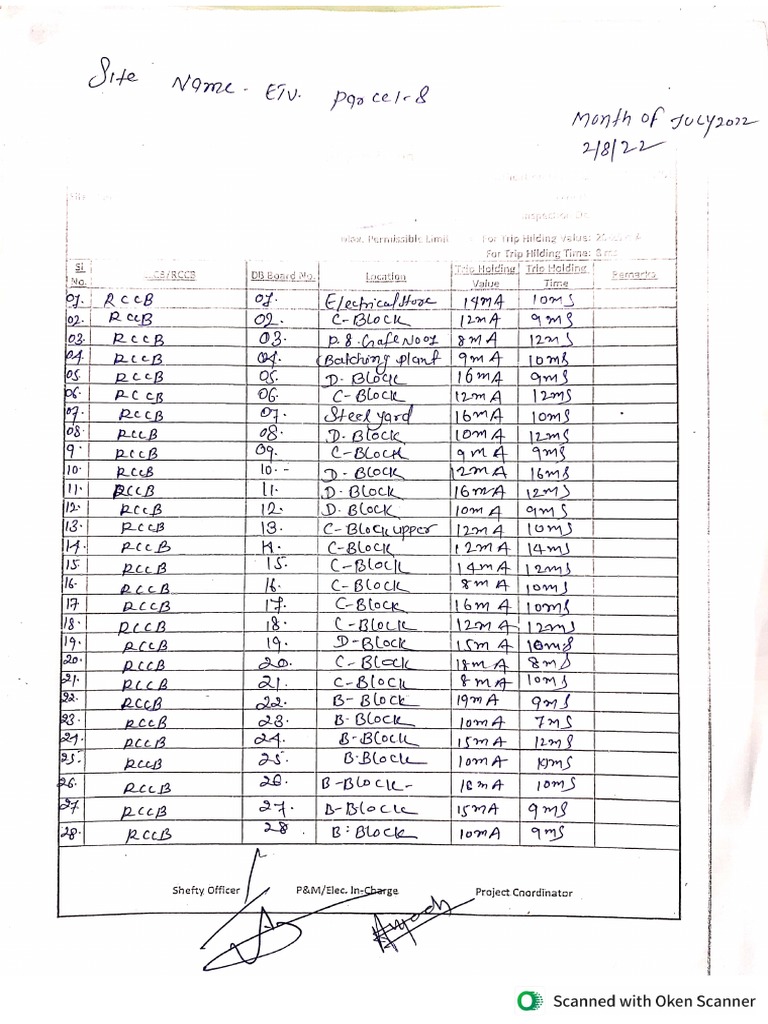 Site Name - ETV. Parcel-8
Month of JULY 2022
2/8/22
Max. Permissible Limit For Trip Hilding Value:
For Trip Hilding Time: 8 ms
Sl No. CB/RCCB DB Board No. Location Trip Holding Value Trip Holding Time Remarks
01. RCCB 01. Electrical store 14mA 10mS
02. RCCB 02. C-BLOCK 12mA 9mS
03. RCCB 03. P.8. Gate No 01 8mA 12mS
04. RCCB 04. (Batching plant 9mA 10mS
05. RCCB 05. D-BLOCK 16mA 9mS
06. RCCB 06. C-BLOCK 12mA 12mS
07. RCCB 07. Steel yard 16mA 10mS
08. RCCB 08. D-BLOCK 10mA 12mS
9. RCCB 09. C-BLOCK 9mA 9mS
10. RCCB 10.- D-BLOCK 12mA 16mS
11. RCCB 11. D-BLOCK 16mA 12mS
12. RCCB 12. D-BLOCK 10mA 9mS
13. RCCB 13. C-BLOCK upper 12mA 10mS
14. RCCB 14. C-BLOCK 12mA 14mS
15 RCCB 15. C-BLOCK 14mA 12mS
16. RCCB 16. C-BLOCK 8mA 10mS
17 RCCB 17. C-BLOCK 16mA 10mS
18. RCCB 18. C-BLOCK 12mA 12mS
19. RCCB 19. D-BLOCK 15mA 10mS
20. RCCB 20. C-BLOCK 18mA 8mS
21. RCCB 21. C-BLOCK 8mA 10mS
22. RCCB 22. B-BLOCK 19mA 9mS
23. RCCB 23. B-BLOCK 10mA 7mS
24. RCCB 24. B-BLOCK 15mA 12mS
25. RCCB 25. B-BLOCK 10mA 10mS
26. RCCB 26. B-BLOCK- 16mA 10mS
27. RCCB 27. B-BLOCK 15mA 9mS
28. RCCB 28 B-BLOCK 10mA 9mS
Shefty Officer P&M/Elec. In-Charge Project Coordinator
Scanned with Oken Scanner